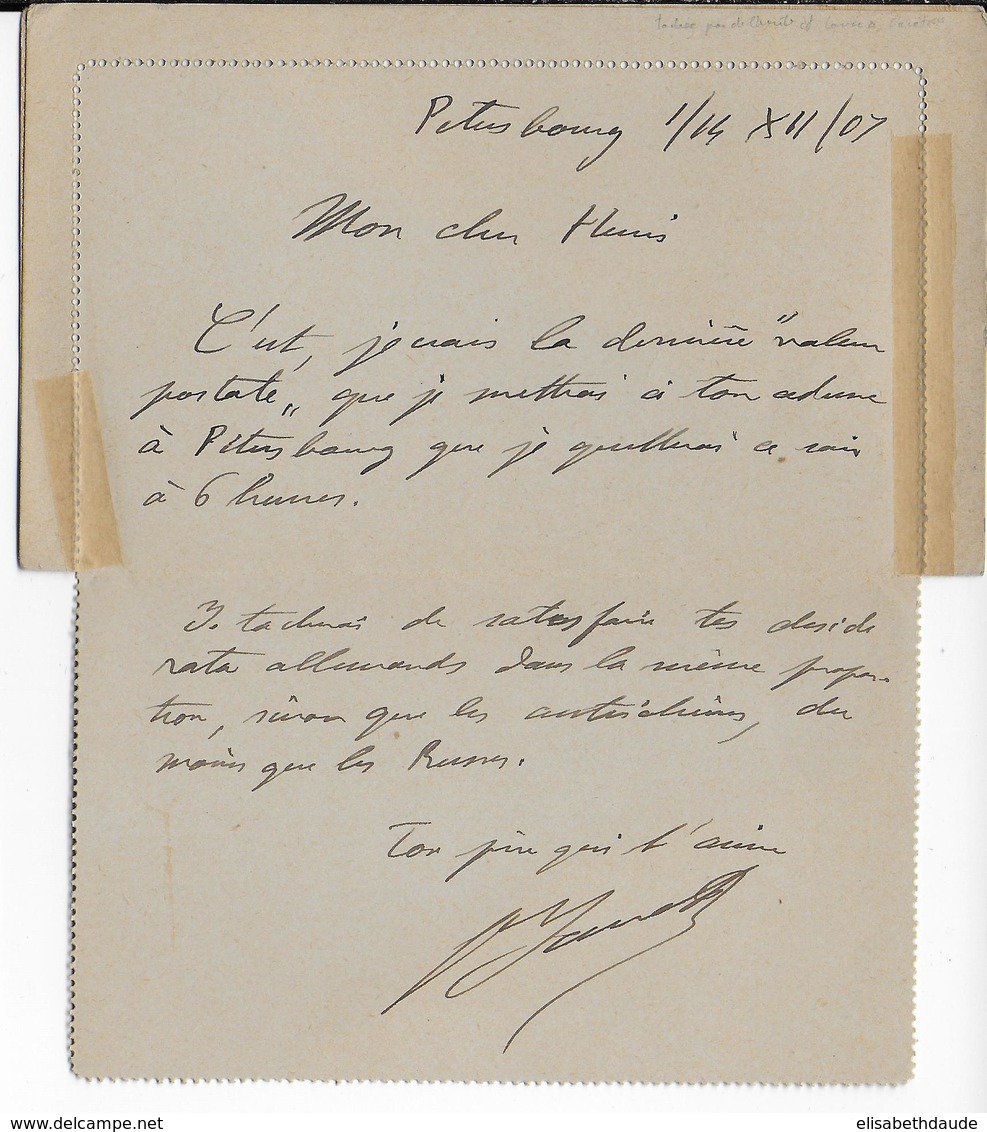 Petersbourg 1/14 XII/07
Mon cher Henri
C'est, je crois la dernière "valeur
postale" que je mettrai à ton adresse
à Petersbourg que je quitterai ce soir
à 6 heures.
Je tacherai de satisfaire tes deside
rata allemands dans la même propor-
tion, sinon que les autrichiens, du
moins que les Russes.
Ton père qui t'aime
elisabethdaude